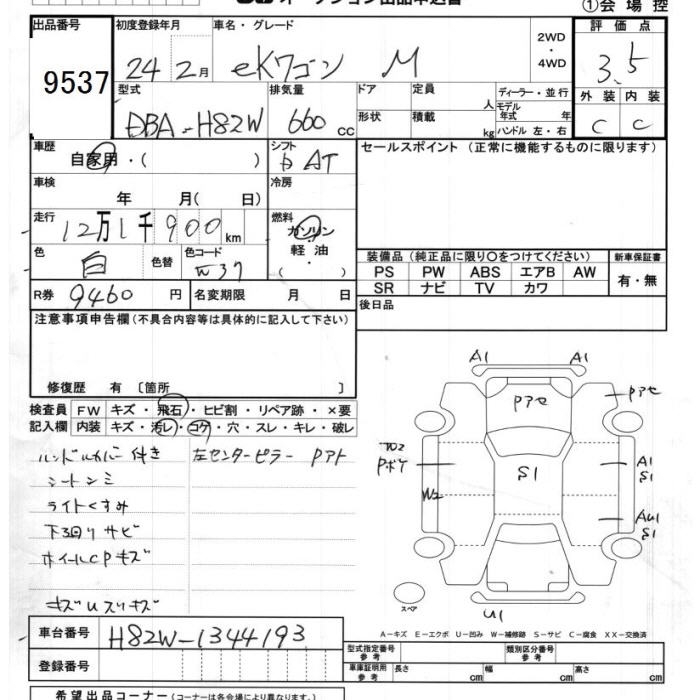 ①会場控
出品番号
9537
初度登録年月
24年2月
車名・グレード
eKワゴン M
2WD
・
4WD
評価点
3.5
外装 内装
C C
型式
DBA-H82W
排気量
660 cc
ドア 定員 人
形状 積載 kg
ディーラー・並行
モデル年式 年
ハンドル 左・右
車歴
自家用・( )
シフト
AT
セールスポイント (正常に機能するものに限ります)
車検
年 月( 日)
冷房
走行
12万1千900km
燃料
ガソリン
軽油
・( )
色
白
色替
色コード
W37
装備品 (純正品に限り○をつけてください)
PS PW ABS エアB AW
SR ナビ TV カワ
新車保証書
有・無
R券 9460円
名変期限 月 日
後日品
注意事項申告欄 (不具合内容等は具体的に記入して下さい)
修復歴 有 〔箇所 〕
検査員 FW キズ・飛石・ヒビ割・リペア跡・×要
記入欄 内装 キズ・汚レ・コゲ・穴・スレ・キレ・破レ
ハンドルカバー付き 左センターピラー Pアト
シートシミ
ライトくすみ
下廻りサビ
ホイールCPキズ
キズUスリキズ
A1 A1
Pアセ
Pアセ
Pボケ
S1
A1
S1
W2
AU1
S1
スペア
U1
A-キズ E-エクボ U-凹み W-補修跡 S-サビ C-腐食 XX-交換済
車台番号 H82W-1344193
登録番号
型式指定番号 参考
類別区分番号 参考
車庫証明用 参考 長さ cm 幅 cm 高さ cm
希望出品コーナー (コーナーは各会場により異なります。)